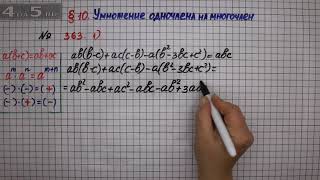 4 на 5
§ 10. Умножение одночлена на многочлен
№ 363. 1)
a(b+c)=ab+ac
aᵐ·aⁿ=aᵐ⁺ⁿ
(-)·(-)=(+)
(-)·(+)=(-)
ab(b-c)+ac(c-b)-a(b²-3bc+c²)=abc
ab(b-c)+ac(c-b)-a(b²-3bc+c²)=
=ab²-abc+ac²-abc-ab²+3ab